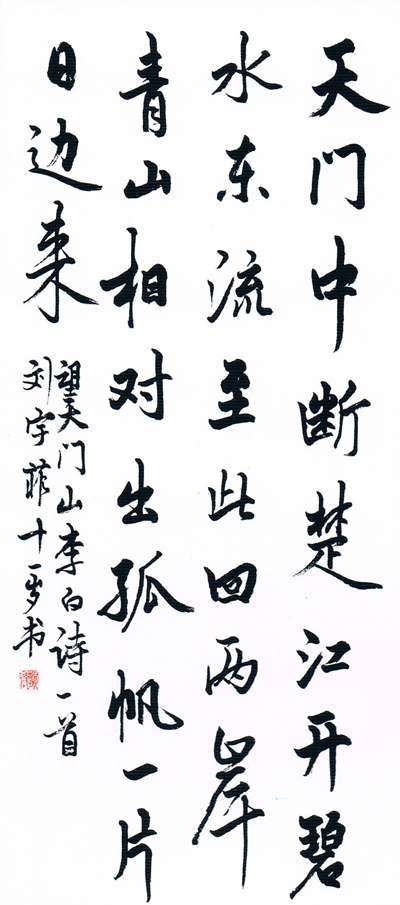 天门中断楚江开碧
水东流至此回两岸
青山相对出孤帆一片
日边来
望天门山李白诗一首
刘宇菲十一岁书